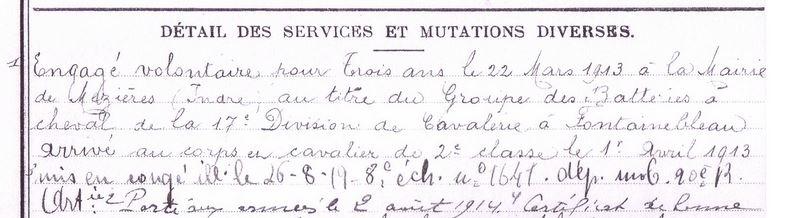 DÉTAIL DES SERVICES ET MUTATIONS DIVERSES.
1 Engagé volontaire pour Trois ans le 22 Mars 1913 à la Mairie
de Mézières (Indre) au titre du Groupe des Batteries à
cheval de la 17e Division de Cavalerie à Fontainebleau
arrivé au corps en cavalier de 2e classe le 1er Avril 1913
mis en congé ill. le 26-8-19 - 8e éch. no 1641. dép. mob. 90e R.
(Artie) Parti aux armées le 2 août 1914. Certificat de bonne